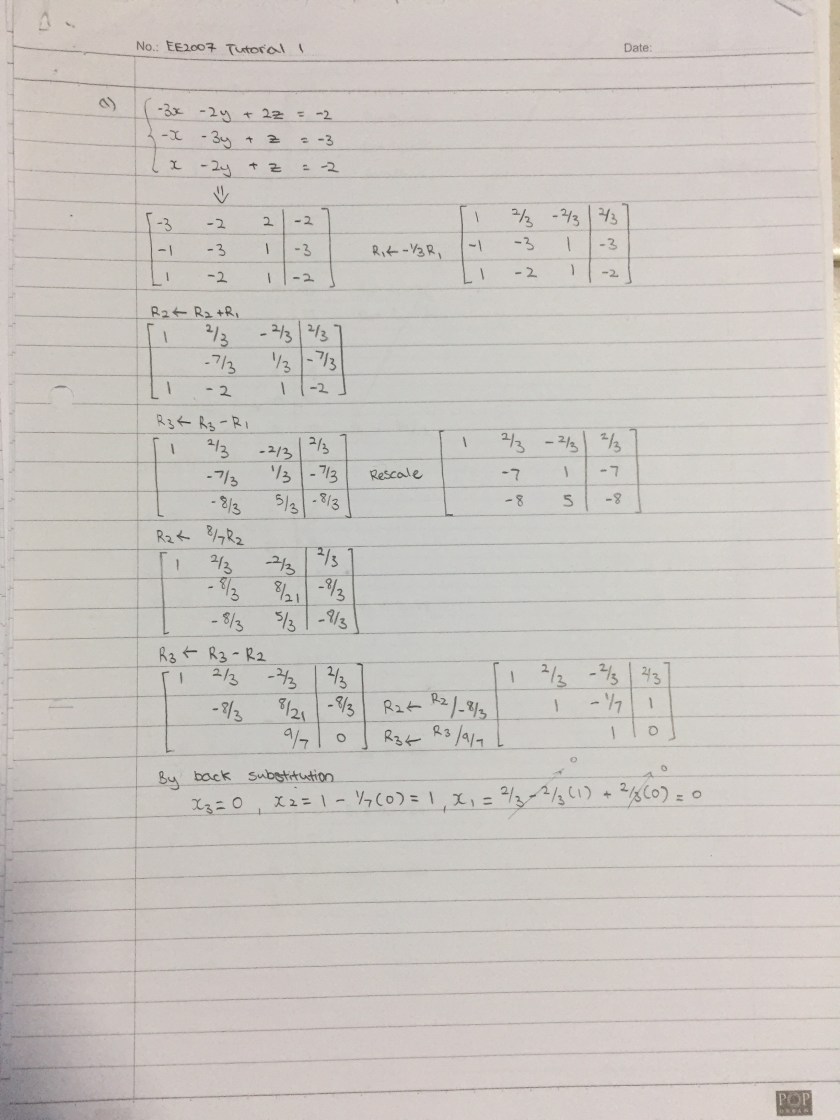 No.: EE2007 Tutorial 1 Date:
a) -3x -2y + 2z = -2
-x -3y + z = -3
x -2y + z = -2
⇓
-3 -2 2 | -2 1 2/3 -2/3 | 2/3
-1 -3 1 | -3 R₁← -1/3R₁ -1 -3 1 | -3
1 -2 1 | -2 1 -2 1 | -2
R2← R2+R1
1 2/3 -2/3 | 2/3
-7/3 1/3 | -7/3
1 -2 1 | -2
R3← R3-R1
1 2/3 -2/3 | 2/3 1 2/3 -2/3 | 2/3
-7/3 1/3 | -7/3 Rescale -7 1 | -7
-8/3 5/3 | -8/3 -8 5 | -8
R2← 8/7R2
1 2/3 -2/3 | 2/3
-8/3 8/21 | -8/3
-8/3 5/3 | -8/3
R3← R3-R2
1 2/3 -2/3 | 2/3 1 2/3 -2/3 | 2/3
-8/3 8/21 | -8/3 R2← R2/-8/3 1 -1/7 | 1
9/7 | 0 R3← R3/9/7 1 | 0
By back substitution
0 0
x3=0, x2=1-1/7(0)=1, x1=2/3-2/3(1)+2/3(0)=0
POP